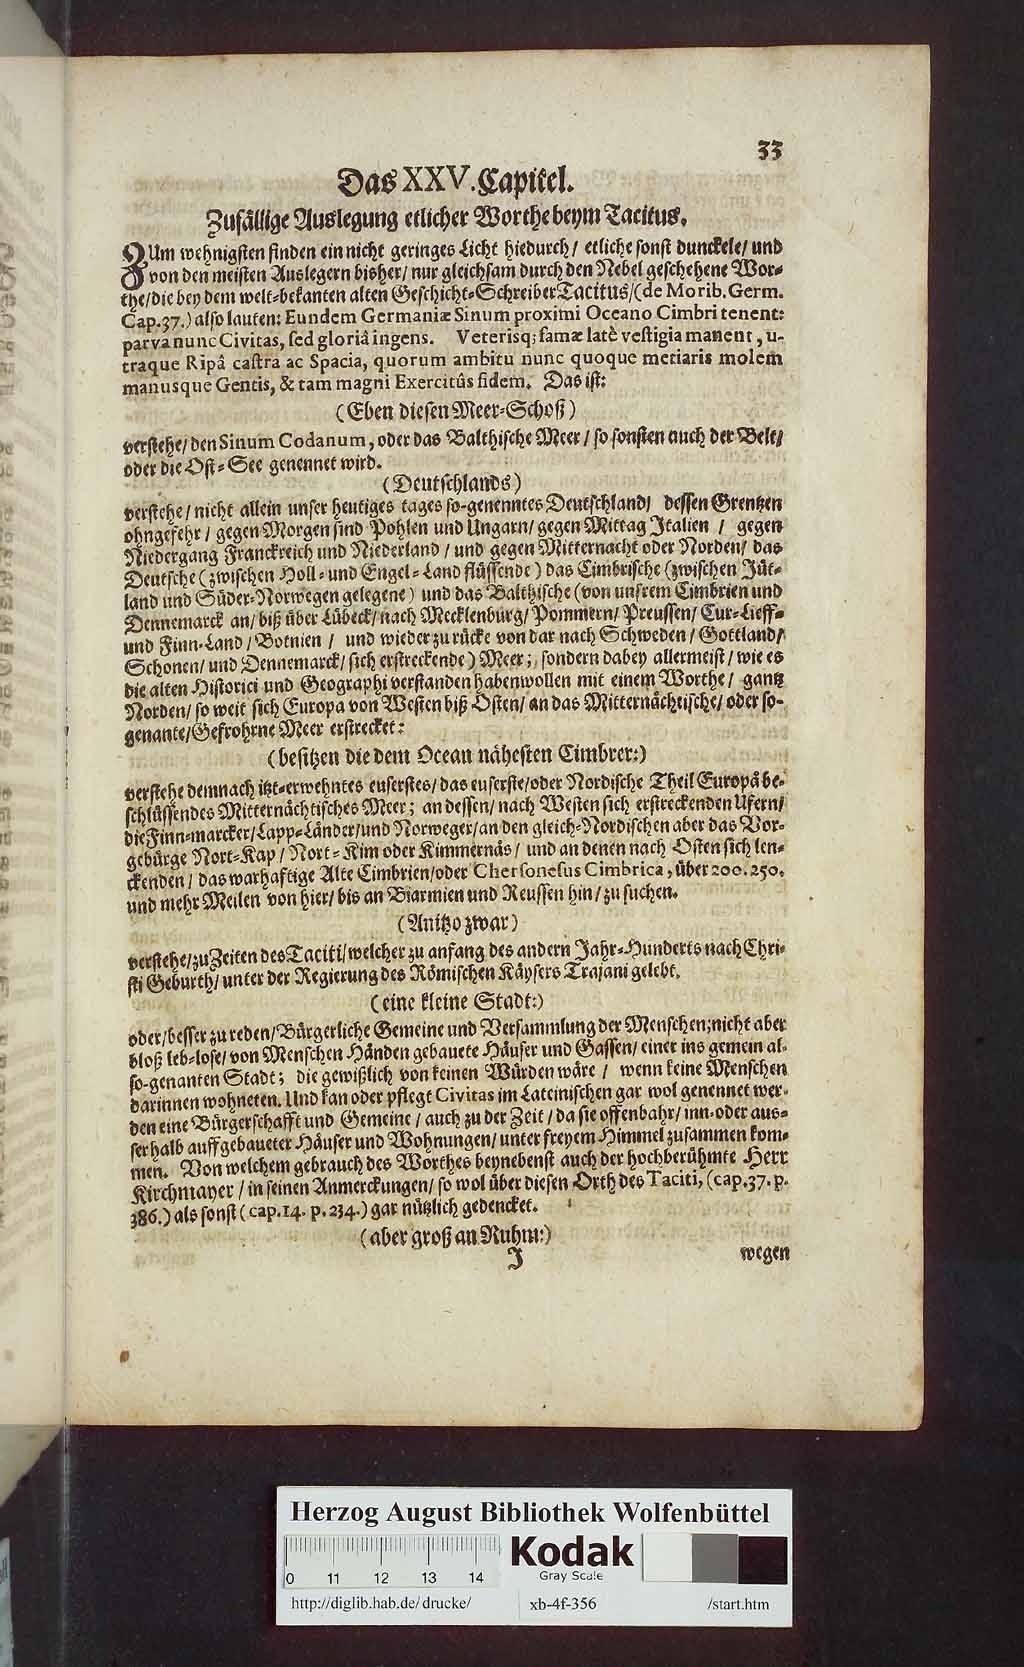 33
Das XXV. Capitel.
Zufällige Auslegung etlicher Worthe beym Tacitus.
ZUm wehnigsten finden ein nicht geringes Licht hiedurch/ etliche sonst dunckele/ und
von den meisten Auslegern bisher/ nur gleichsam durch den Nebel geschehene Wor-
the/ die bey dem welt-bekanten alten Geschicht-Schreiber Tacitus/ (de Morib. Germ.
Cap. 37.) also lauten: Eundem Germaniæ Sinum proximi Oceano Cimbri tenent:
parva nunc Civitas, sed gloriâ ingens. Veterisq; famæ latè vestigia manent, u-
traque Ripâ castra ac Spacia, quorum ambitu nunc quoque metiaris molem
manusque Gentis, & tam magni Exercitûs fidem. Das ist:
(Eben diesen Meer-Schoß)
verstehe/ den Sinum Codanum, oder das Balthische Meer/ so sonsten auch der Belt/
oder die Ost-See genennet wird.
(Deutschlands)
verstehe/ nicht allein unser heutiges tages so-genenntes Deutschland/ dessen Grentzen
ohngefehr/ gegen Morgen sind Pohlen und Ungarn/ gegen Mittag Italien/ gegen
Niedergang Franckreich und Niederland/ und gegen Mitternacht oder Norden/ das
Deutsche (zwischen Holl- und Engel-Land flüssende) das Cimbrische (zwischen Jüt-
land und Süder-Norwegen gelegene) und das Balthische (von unsrem Cimbrien und
Dennemarck an/ biß über Lübeck/ nach Mecklenburg/ Pommern/ Preussen/ Cur-Lieff-
und Finn-Land/ Botnien/ und wieder zu rücke von dar nach Schweden/ Gottland/
Schonen/ und Dennemarck/ sich erstreckende) Meer; sondern dabey allermeist/ wie es
die alten Historici und Geographi verstanden haben wollen mit einem Worthe/ gantz
Norden/ so weit sich Europa von Westen biß Osten/ an das Mitternächtische/ oder so-
genante/ Gefrohrne Meer erstrecket:
(besitzen die dem Ocean nähesten Cimbrer:)
verstehe demnach itzt-erwehntes euserstes/ das euserste/ oder Nordische Theil Europâ be-
schlüssendes Mitternächtisches Meer; an dessen/ nach Westen sich erstreckenden Ufern/
die Finn-marcker/ Lapp-Länder/ und Norweger/ an den gleich-Nordischen aber das Vor-
gebürge Nort-Kap/ Nort-Kim oder Kimmernäs/ und an denen nach Osten sich len-
ckenden/ das warhaftige Alte Cimbrien/ oder Chersonesus Cimbrica, über 200. 250.
und mehr Meilen von hier/ bis an Biarmien und Reussen hin/ zu suchen.
(Anitzo zwar)
verstehe/ zu Zeiten des Taciti/ welcher zu anfang des andern Jahr-Hunderts nach Chri-
sti Geburth/ unter der Regierung des Römischen Käysers Trajani gelebt.
(eine kleine Stadt:)
oder/ besser zu reden/ Bürgerliche Gemeine und Versammlung der Menschen; nicht aber
bloß leb-lose/ von Menschen Händen gebauete Häuser und Gassen/ einer ins gemein al-
so-genanten Stadt; die gewißlich von keinen Würden wäre/ wenn keine Menschen
darinnen wohneten. Und kan oder pflegt Civitas im Lateinischen gar wol genennet wer-
den eine Bürgerschafft und Gemeine/ auch zu der Zeit/ da sie offenbahr/ inn- oder aus-
serhalb auffgebaueter Häuser und Wohnungen/ unter freyem Himmel zusammen kom-
men. Von welchem gebrauch des Worthes beynebenst auch der hochberühmte Herr
Kirchmayer/ in seinen Anmerckungen/ so wol über diesen Orth des Taciti, (cap. 37. p.
386.) als sonst (cap. 14. p. 234.) gar nützlich gedencket.
(aber groß an Ruhm:)
J wegen
Herzog August Bibliothek Wolfenbüttel
0 11 12 13 14
Kodak
Gray Scale
http://diglib.hab.de/drucke/ xb-4f-356 /start.htm